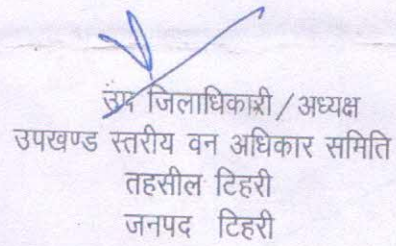 उप जिलाधिकारी/अध्यक्ष
उपखण्ड स्तरीय वन अधिकार समिति
तहसील टिहरी
जनपद टिहरी